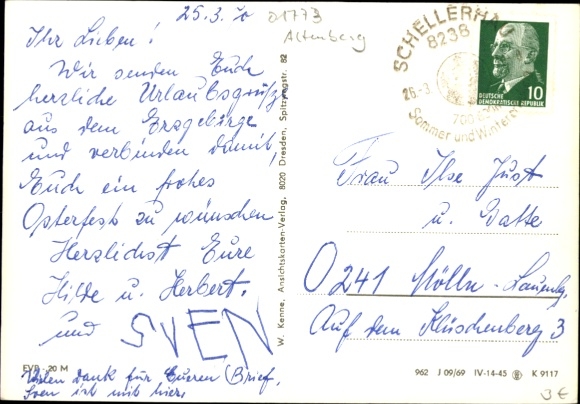 25.3.70
01773
Altenberg
Ihr Lieben!
Wir senden Euch
herzliche Urlaubsgrüße
aus dem Erzgebirge
und verbinden damit,
Euch ein frohes
Osterfest zu wünschen
Herzlichst Eure
Hilde u. Herbert.
und SVEN
EVP -20 M
Vielen Dank für Eueren Brief.
Sven ist mit hier.
W. Kenne, Ansichtskarten-Verlag, 8020 Dresden, Spitzwegstr. 82
SCHELLERHA
8238
26.-3.
700
Sommer und Winter
10
DEUTSCHE
DEMOKRATISCHE REPUBLIK
Frau Ilse Just
u. Gatte
0241 Mölln-Lauenbg.
Auf dem Klüschenberg 3
962 J 09/69 IV-14-45 K 9117
3€